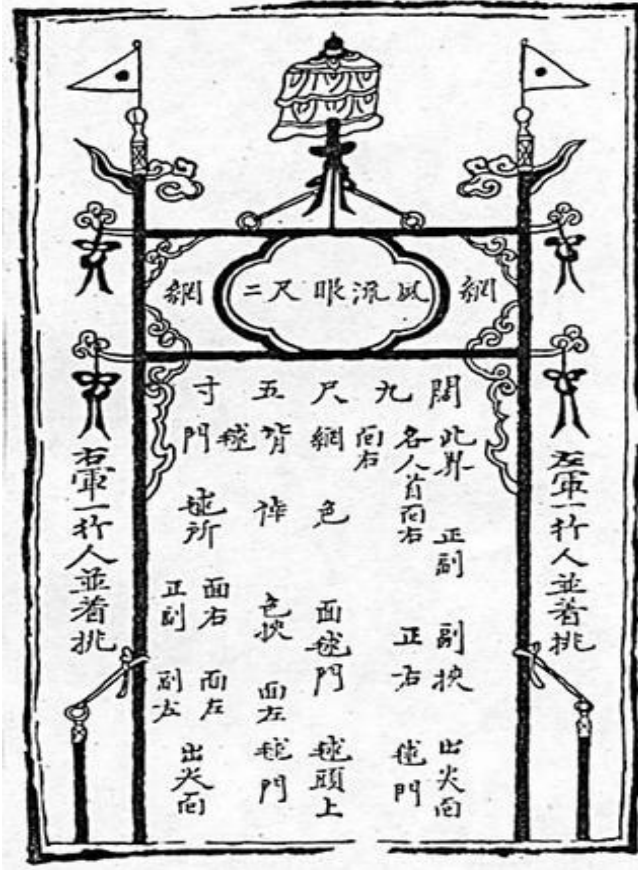 網 風流眼尺二 網
闊九尺五寸
左軍一行人並着挑
此界 正副 副挾 出尖向
各人首向右 正右 毬門
向右
網 色 面毬門 毬頭上
背 色挾 面左 毬門
毬
毬所 面右 面左 出尖向
門 正副 副左
右軍一行人並着挑